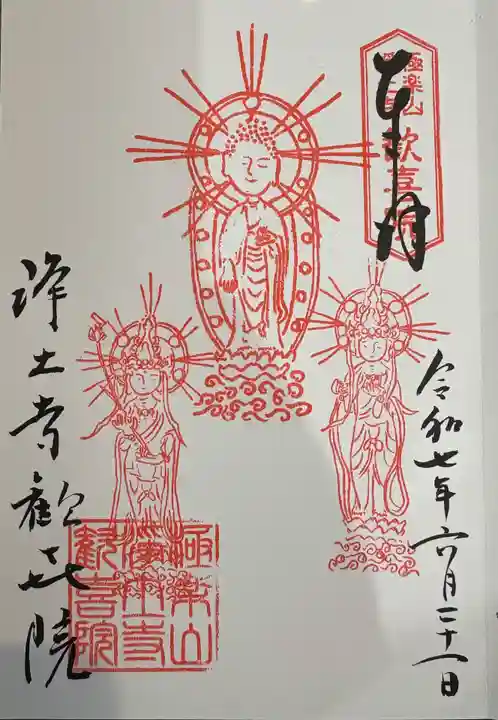 奉拝
極楽山
浄土寺
歓喜院
令和七年六月二十一日
浄土寺歓㐂院
極楽山
浄土寺
歓喜院